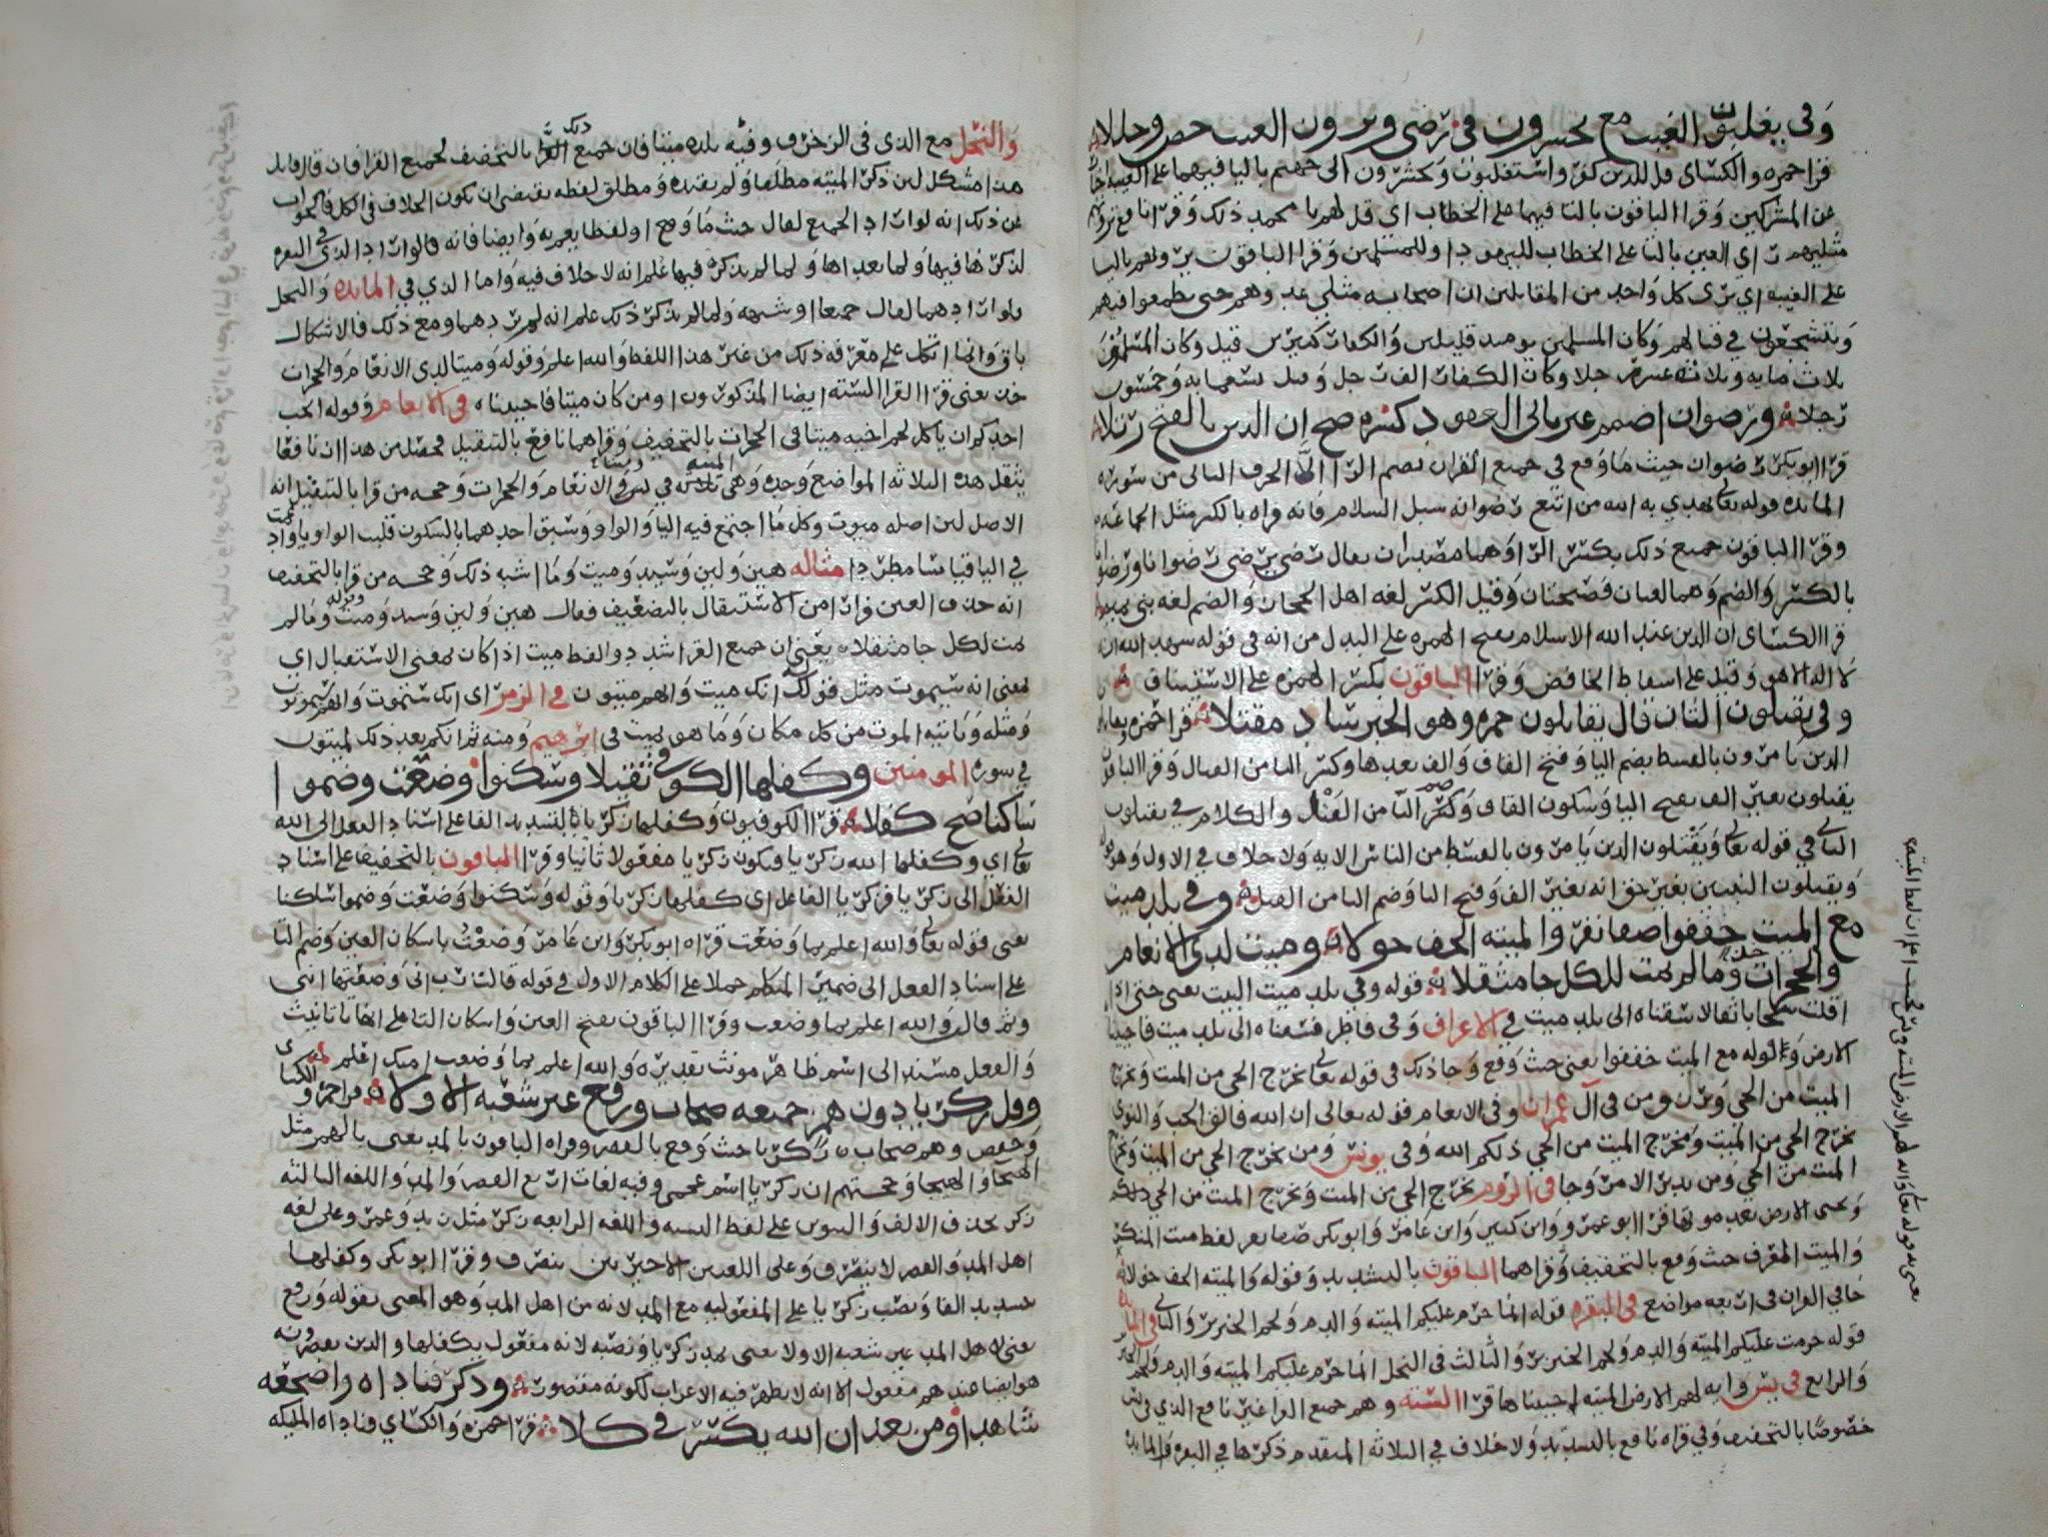 وفي يغلبون الغيب مع يحشرون في رضى ويرون الغيب خص وخللا
قرا حمزه والكسائي قل للذين كفروا ستغلبون وتحشرون الى جهنم باليا فيهما على الغيبه
عن المشركين وقرا الباقون بالتا فيهما على الخطاب اي قل لهم يا محمد ذلك وقرا نافع ترونهم
مثليهم راي العين بالتا على الخطاب لليهود او للمسلمين وقرا الباقون يرونهم باليا
على الغيبه اي يرى كل واحد من المقابلين ان اصحابه مثلي عدوهم حتى يطمعوا فيهم
ويتشجعون في قتالهم وكان المسلمين يوميد قليلين والكفار كثيرين قيل وكان المسلمون
ثلاث مايه وثلاثه عشر رجلا وكان الكفار الف رجل وقيل تسعمايه وخمسون
رجلا ورضوان اضمم غير ثاني العقود كسره صح ان الدين بالفتح رفلا
قرا ابو بكر رضوان حيث ما وقع في جميع القران بضم الرا الا الحرف الثاني من سوره
المايده قوله تعالى يهدي به الله من اتبع رضوانه سبل السلام فانه قراه بالكسر مثل الجماعه
وقرا الباقون جميع ذلك بكسر الرا وهما مصدران يقال رضي يرضى رضوانا ورضوانا
بالكسر والضم وهما لغتان فصيحتان وقيل الكسر لغه اهل الحجاز والضم لغه بني تميم
قرا الكسائي ان الدين عند الله الاسلام بفتح الهمزه على البدل من انه في قوله شهد الله انه
لا اله الا هو وقيل على اسقاط الخافض وقرا الباقون بكسر الهمزه على الاستيناف
وفي يقتلون الثان قال يقاتلون حمزه وهو الحبر ساد مقتلا قرا حمزه ويقاتلون
الذين يامرون بالقسط بضم اليا وفتح القاف والف بعدها وكسر التا من القتال وقرا الباقون
يقتلون بغير الف بفتح اليا وسكون القاف وضم التا من القتل والكلام في يقتلون
الثاني في قوله تعالى ويقتلون الذين يامرون بالقسط من الناس الايه ولا خلاف في الاول وهو
ويقتلون النبيين بغير حق انه بغير الف وفتح اليا وضم التا من القتل وفي بلد ميت
مع الميت خففوا صفا نفرا والميته الخف خولا وميتا لدى الانعام
والحجرات خذ وما لم يمت للكل جا مثقلا قوله وفي بلد ميت الميت يعنى حتى اذا
اقلت سحابا ثقالا سقناه الى بلد ميت في الاعراف وفي فاطر فسقناه الى بلد ميت فاحيينا
الارض وقوله مع الميت خففوا يعني حيث وقع وجا ذلك في قوله تعالى تخرج الحي من الميت وتخرج
الميت من الحي وترزق من في آل عمران وفي الانعام قوله تعالى ان الله فالق الحب والنوى
يخرج الحي من الميت ومخرج الميت من الحي ذلكم الله وفي يونس ومن يخرج الحي من الميت ويخرج
الميت من الحي ومن يدبر الامر وجا في الروم يخرج الحي من الميت ويخرج الميت من الحي
ويحيى الارض بعد موتها قرا ابو عمرو وابن كثير وابن عامر وابو بكر صفا نفر لفظ ميت المنكر
والميت المعرف حيث وقع بالتخفيف وقراهما الباقون بالتشديد وقوله والميته الخف خولا
جا في القران في اربعه مواضع في البقره قوله انما حرم عليكم الميته والدم ولحم الخنزير والثاني في المايده
قوله حرمت عليكم الميته والدم ولحم الخنزير والثالث في النحل انما حرم عليكم الميته والدم ولحم الخنزير
والرابع في يس وايه لهم الارض الميته احييناها قرا السته وهم جميع القرا غير نافع الذي في يس
خصوصا بالتخفيف وفي قراه نافع بالتشديد ولا خلاف في الثلاثه المتقدم ذكرها في البقره والمايده
والنحل مع الذي في الزخرف وفيه بلده ميتا فان جميع القرا بالتخفيف لجميع القرا فان قال قايل
هذا مشكل لين ذكر الميته مطلقا ولم يقيده ومطلق لفظه يقتضى ان يكون الخلاف في الكل فالجواب
عن ذلك انه لو اراد الجميع لقال حيث ما وقع او لفظا يعم به وايضا فانه قال لو اراد الذي في البقره
لذكرها فيها ولما بعداها ولما لم يذكره فيها علم انه لا خلاف فيه واما الذي في المايده والنحل
فلو ارادهما لقال جميعا او شبهه ولما لم يذكر ذلك علم انه لم يردهما ومع ذلك فالاشكال
باق وانما اتكل على معرفه ذلك من غير هذا اللفظ والله اعلم وقوله وميتا لدى الانعام والحجرات
خذ يعنى قرا القرا السته ايضا المذكورون او من كان ميتا فاحييناه في الانعام وقوله ايحب
احدكم ان ياكل لحم اخيه ميتا في الحجرات بالتخفيف وقراهما نافع بالتثقيل فحصل من هذا ان نافعا
يثقل هذه الثلاثه المواضع وحده وهي الميته في يس وميتا في الانعام والحجرات وحجه من قرا بالتثقيل انه
الاصل لين اصله ميوت وكل ما اجتمع فيه اليا والواو وسبق احدهما بالسكون قلبت الواو يا وادغمت
في اليا قياسا مطردا مثاله هين ولين وسيد وميت وما اشبه ذلك وحجه من قرا بالتخفيف
انه حذف العين فرارا من الاستثقال بالتضعيف فقال هين ولين وسيد وميت وقوله وما لم
يمت للكل جا مثقلا يعني ان جميع القرا شددوا لفظ ميت اذا كان بمعنى الاستقبال اي
بمعنى انه سيموت مثل قوله انك ميت وانهم ميتون في الزمر اي انك ستموت وانهم سيموتون
ومثله وياتيه الموت من كل مكان وما هو بميت في ابرهيم ومنه ثم انكم بعد ذلك لميتون
في سوره المومنين وكفلها الكوفي ثقيلا وسكنوا وضعت وضموا
ساكنا صح كفلا قرا الكوفيون وكفلها زكريا بالتشديد الفا على اسناد الفعل الى الله
تعالى اي وكفلها الله زكريا فيكون زكريا مفعولا ثانيا وقرا الباقون بالتخفيف على اسناد
الفعل الى زكريا فزكريا الفاعل اي كفلها زكريا وقوله وسكنوا وضعت وضموا ساكنا
يعنى قوله تعالى والله اعلم بما وضعت قراه ابو بكر وابن عامر وضعت باسكان العين وضم التا
على اسناد الفعل الى ضمير المتكلم حملا على الكلام الاول في قوله قالت رب اني وضعتها انثى
وثم قالت والله اعلم بما وضعت وقرا الباقون بفتح العين واسكان التا على انها تا تانيث
والفعل مسند الى اسم ظاهر مونث تقديره والله اعلم بما وضعت اعلم
وقل زكريا دون همز جميعه صحاب ورفع غير شعبه الاولا قرا حمزه والكسائي
وحفص وهم صحاب زكريا حيث وقع بالقصر وقراه الباقون بالمد يعني بالهمز مثل
الهيجا والهيجا وحجتهم ان زكريا اسم عجمي وفيه لغات اربع القصر والمد واللغه الثالثه
زكر بحذف الالف والتنوين على لفظ النسبه واللغه الرابعه زكر مثل زيد وعمرو وعلى لغه
اهل المد والقصر لا ينصرف وعلى اللغتين الاخيرتين ينصرف وقرا ابو بكر وكفلها
بتشديد الفا ونصب زكريا على المفعوليه مع المد لانه من اهل المد وهو المعنى بقوله ورفع
يعنى لاهل المد غير شعبه الاولا يعنى بمد زكريا ونصبه لانه مفعول بكفلها والذين يقصرونه
هو ايضا عندهم مفعول الا انه لا يظهر فيه الاعراب لكونه مقصورا وذكر فناداه واضجعه
شاهدا ومن بعد ان الله يكسر في كلا قرا حمزه والكسائي فناداه المليكه